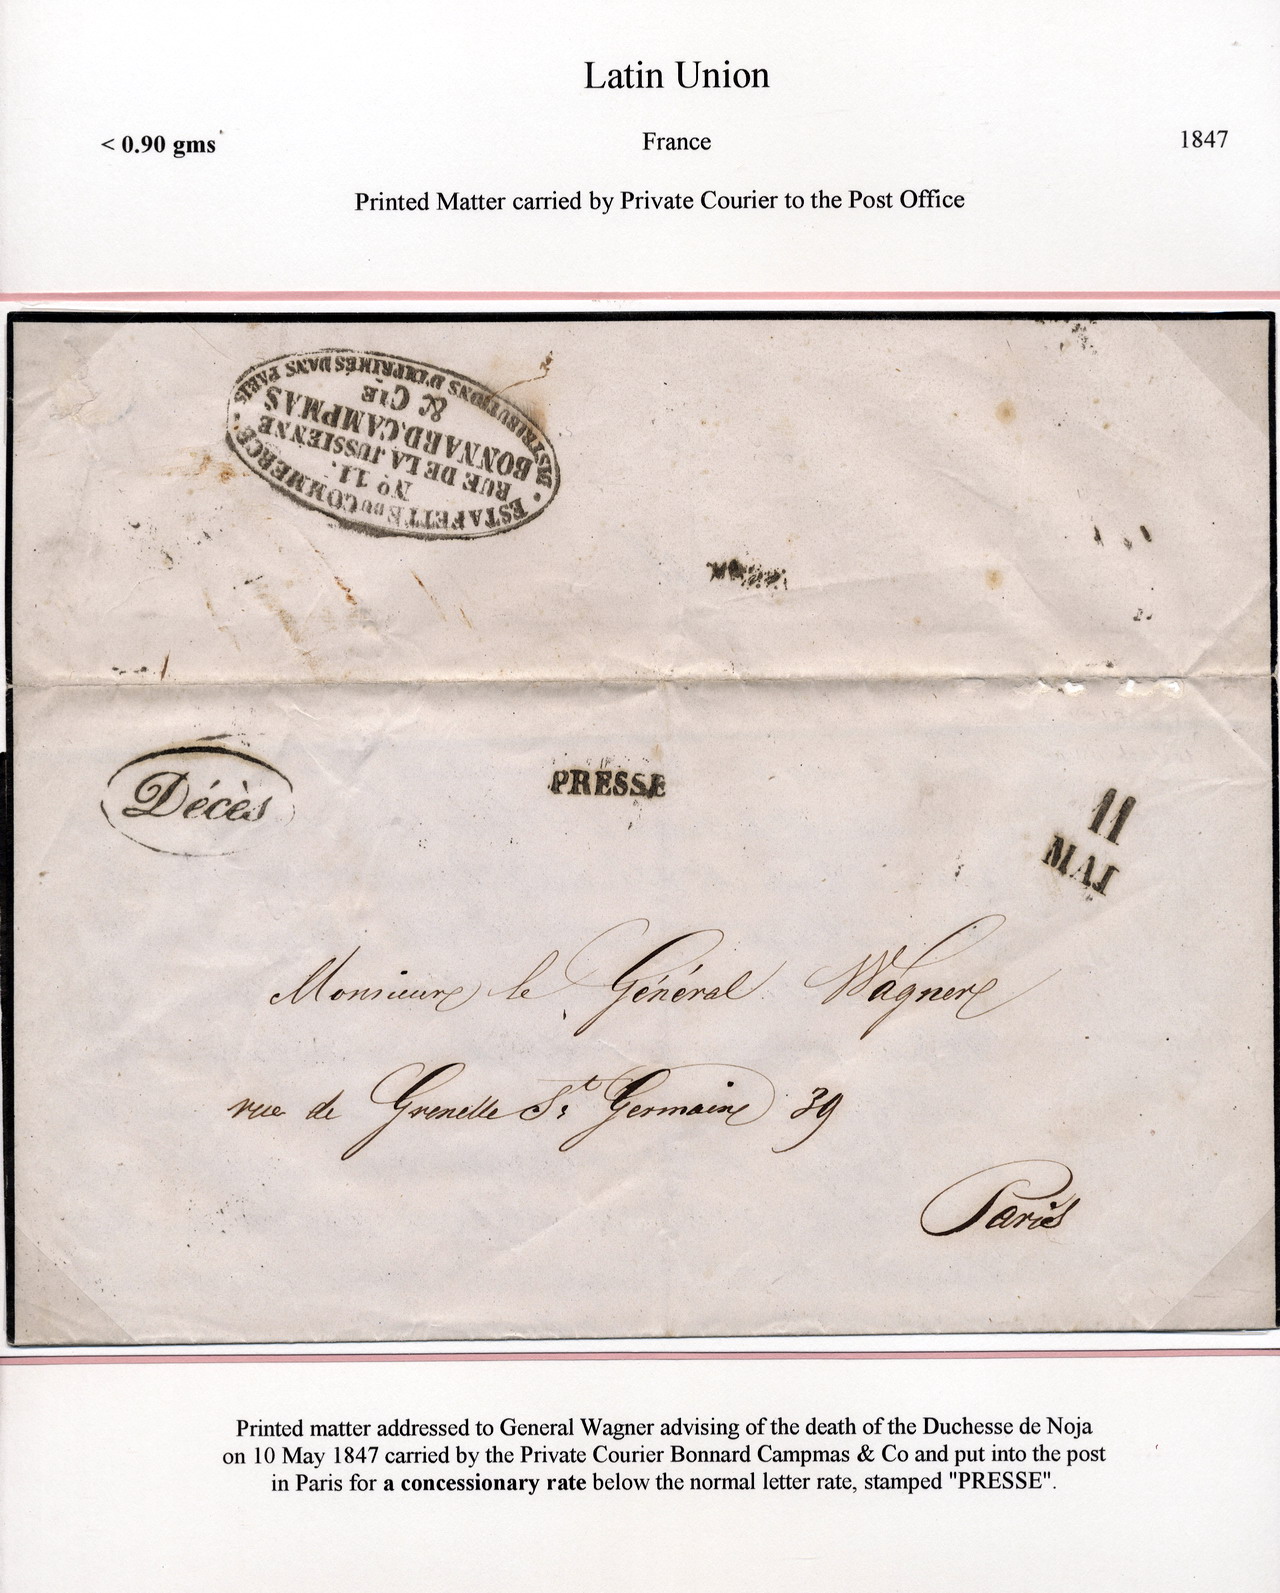 Latin Union
< 0.90 gms France 1847
Printed Matter carried by Private Courier to the Post Office
ESTAFETTE DU COMMERCE
No 11.
RUE DE LA JUSSIENNE
BONNARD, CAMPMAS
& CIE
DISTRIBUTIONS D'IMPRIMÉS DANS PARIS
Décès
PRESSE
11
MAI
Monsieur le Général Wagner
rue de Grenelle St Germain 39
Paris
Printed matter addressed to General Wagner advising of the death of the Duchesse de Noja
on 10 May 1847 carried by the Private Courier Bonnard Campmas & Co and put into the post
in Paris for a concessionary rate below the normal letter rate, stamped "PRESSE".